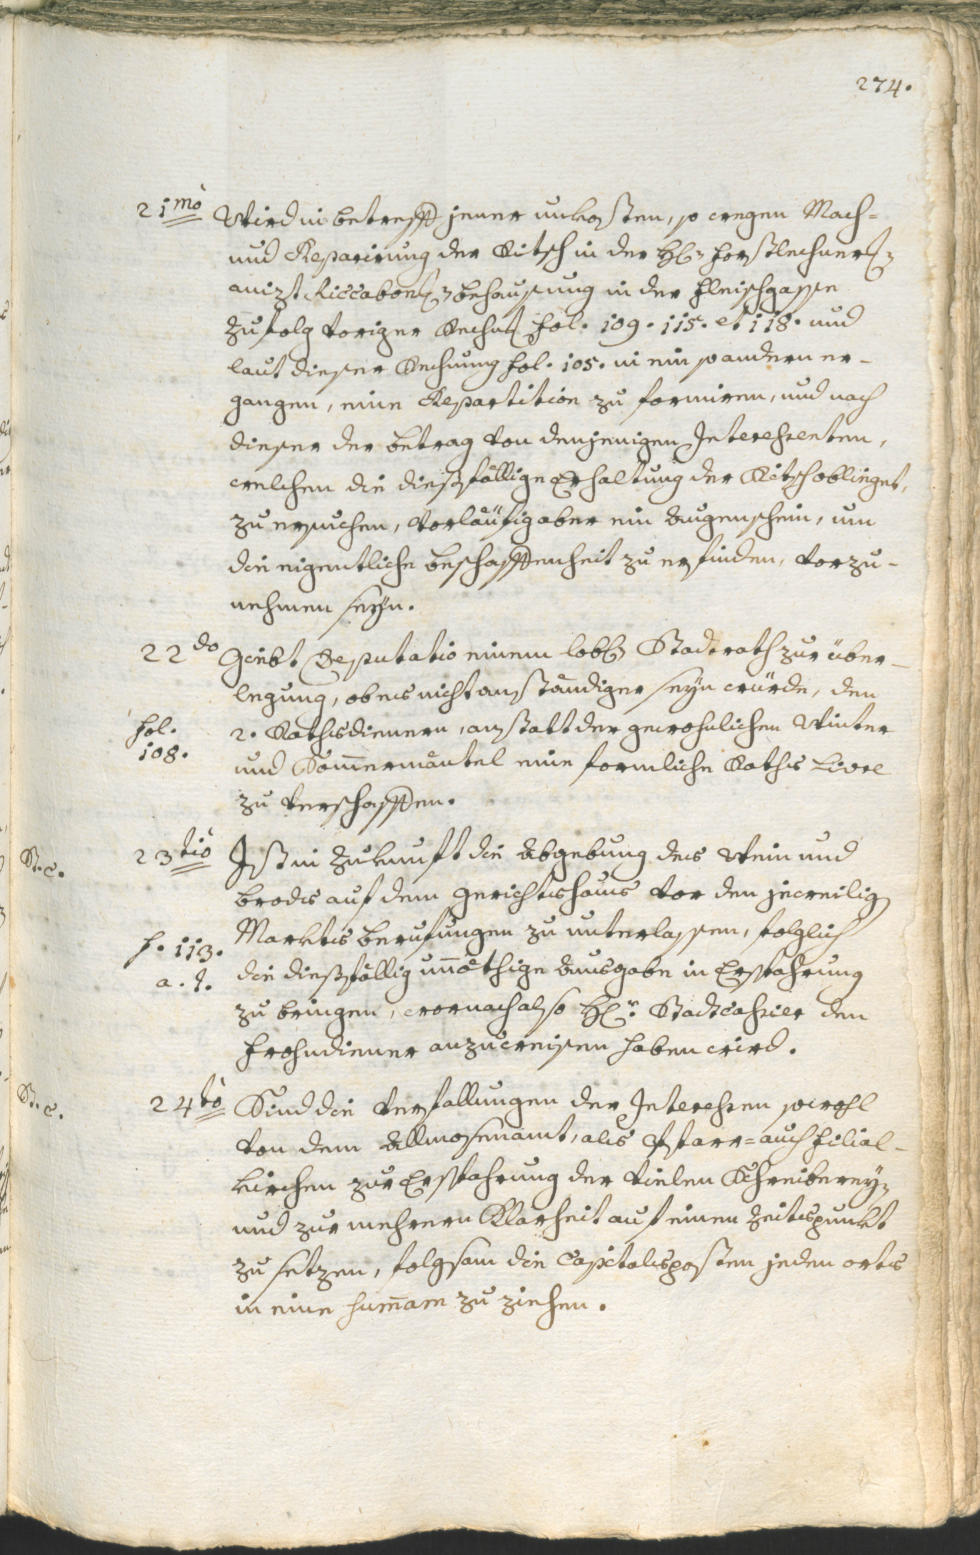 274.
21mo Wird in betreff jener unkosten, so wegen Mach=
und Reparirung der Ritsch in der H: Forstlechner:
anizt Riccabon: behausung in der Fleischgasse
zufolg voriger Rechn: fol. 109. 115. et 118. und
laut dieser Rechnung fol. 105. in ein so andern er-
gangen, eine Repartition zu formiren, und nach
dieser der betrag von denjenigen Interehsenten,
welchen die diesfällige Erhaltung der Ritsch obliget,
zu ersuchen, vorläufig aber ein Augenschein, um
die eigentliche beschaffenheit zu erfinden, vorzu-
nehmen seyn.
22do Giebt Deputatio einem lobl: Stadtrath zur über-
legung, ob es nicht anständiger seyn würde, den
fol.
108.
2. Rathsdienern, anstatt der gewohnlichen Winter
und Som̄ermäntel eine formliche Raths Livre
zu verschaffen.
St. C.
23tio Ist in Zukunft die Abgebung des Wein und
brods auf dem Gerichtshaus vor den jeweilig:
f. 113.
a. t.
Markts berufungen zu unterlassen, folglich
die diesfällig un̄öthige Ausgabe in Ersparung
zu bringen, wornach also H:r Stadtcahsier den
Frohndiener anzuweisen haben wird.
St. C.
24to Sind die Verfallungen der Interehsen sowohl
von dem Allmosenamt, als Pfarr= auch Filial-
kirchen zur Ersparung der vielen Schreiberey:
und zur mehrern Klarheit auf einen Zeitspunkt
zu setzen, folgsam die Capitalsposten jeden orts
in eine sum̄am zu ziehen.